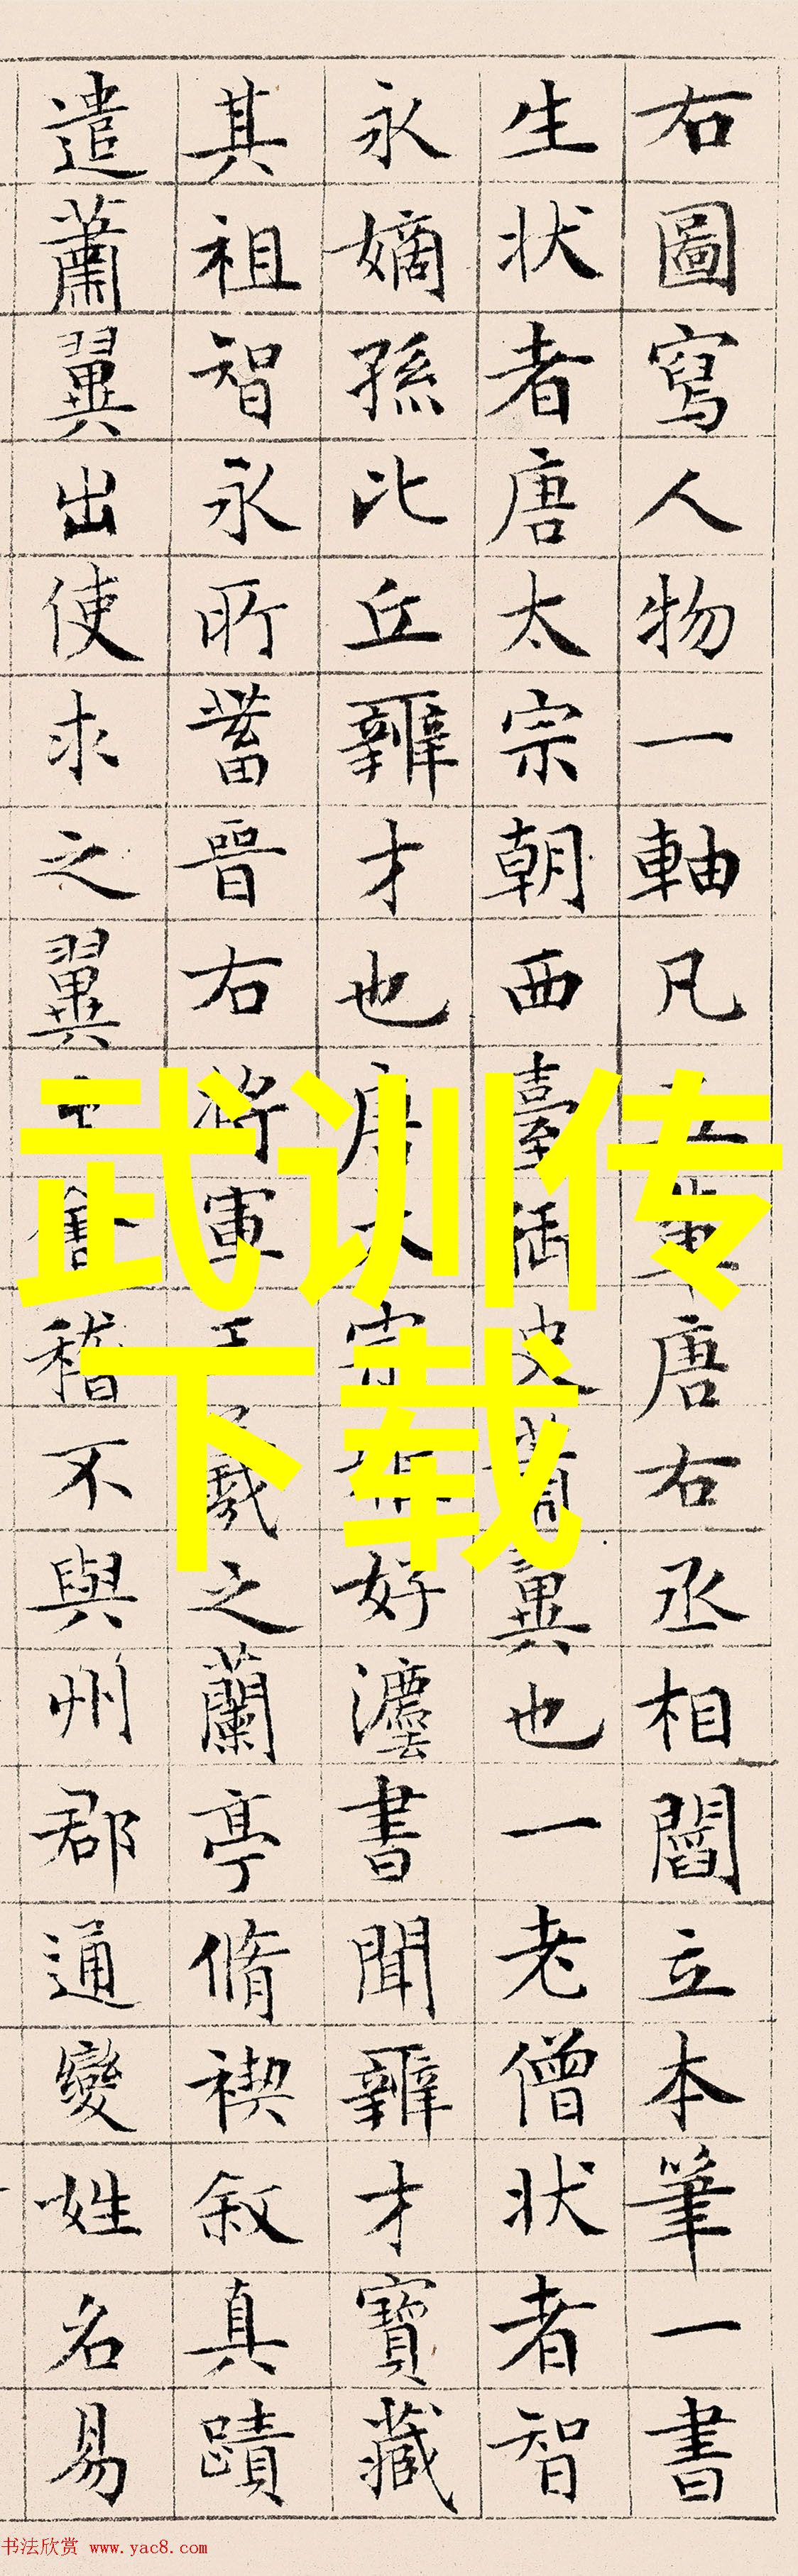 右圖寫人物一軸凡輩唐右丞相閻立本筆一書
生状者唐太宗朝西臺御史蕭翼也一老僧状者智
永嫡孫比丘辯才也唐太宗好灋書聞辯才寶藏
其祖智永所蓄晉右將軍王羲之蘭亭脩禊敘真蹟
遣蕭翼出使求之翼會稽不與州郡通變姓名易
武训传
下载
书法欣赏 www.yac8.com